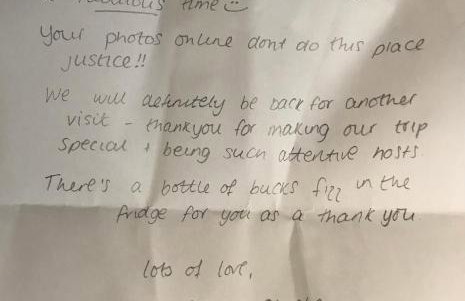 fabulous time
Your photos online dont do this place
justice!!
We will definitely be back for another
visit - thankyou for making our trip
special + being such attentive hosts
There's a bottle of bucks fizz in the
fridge for you as a thank you
lots of love,